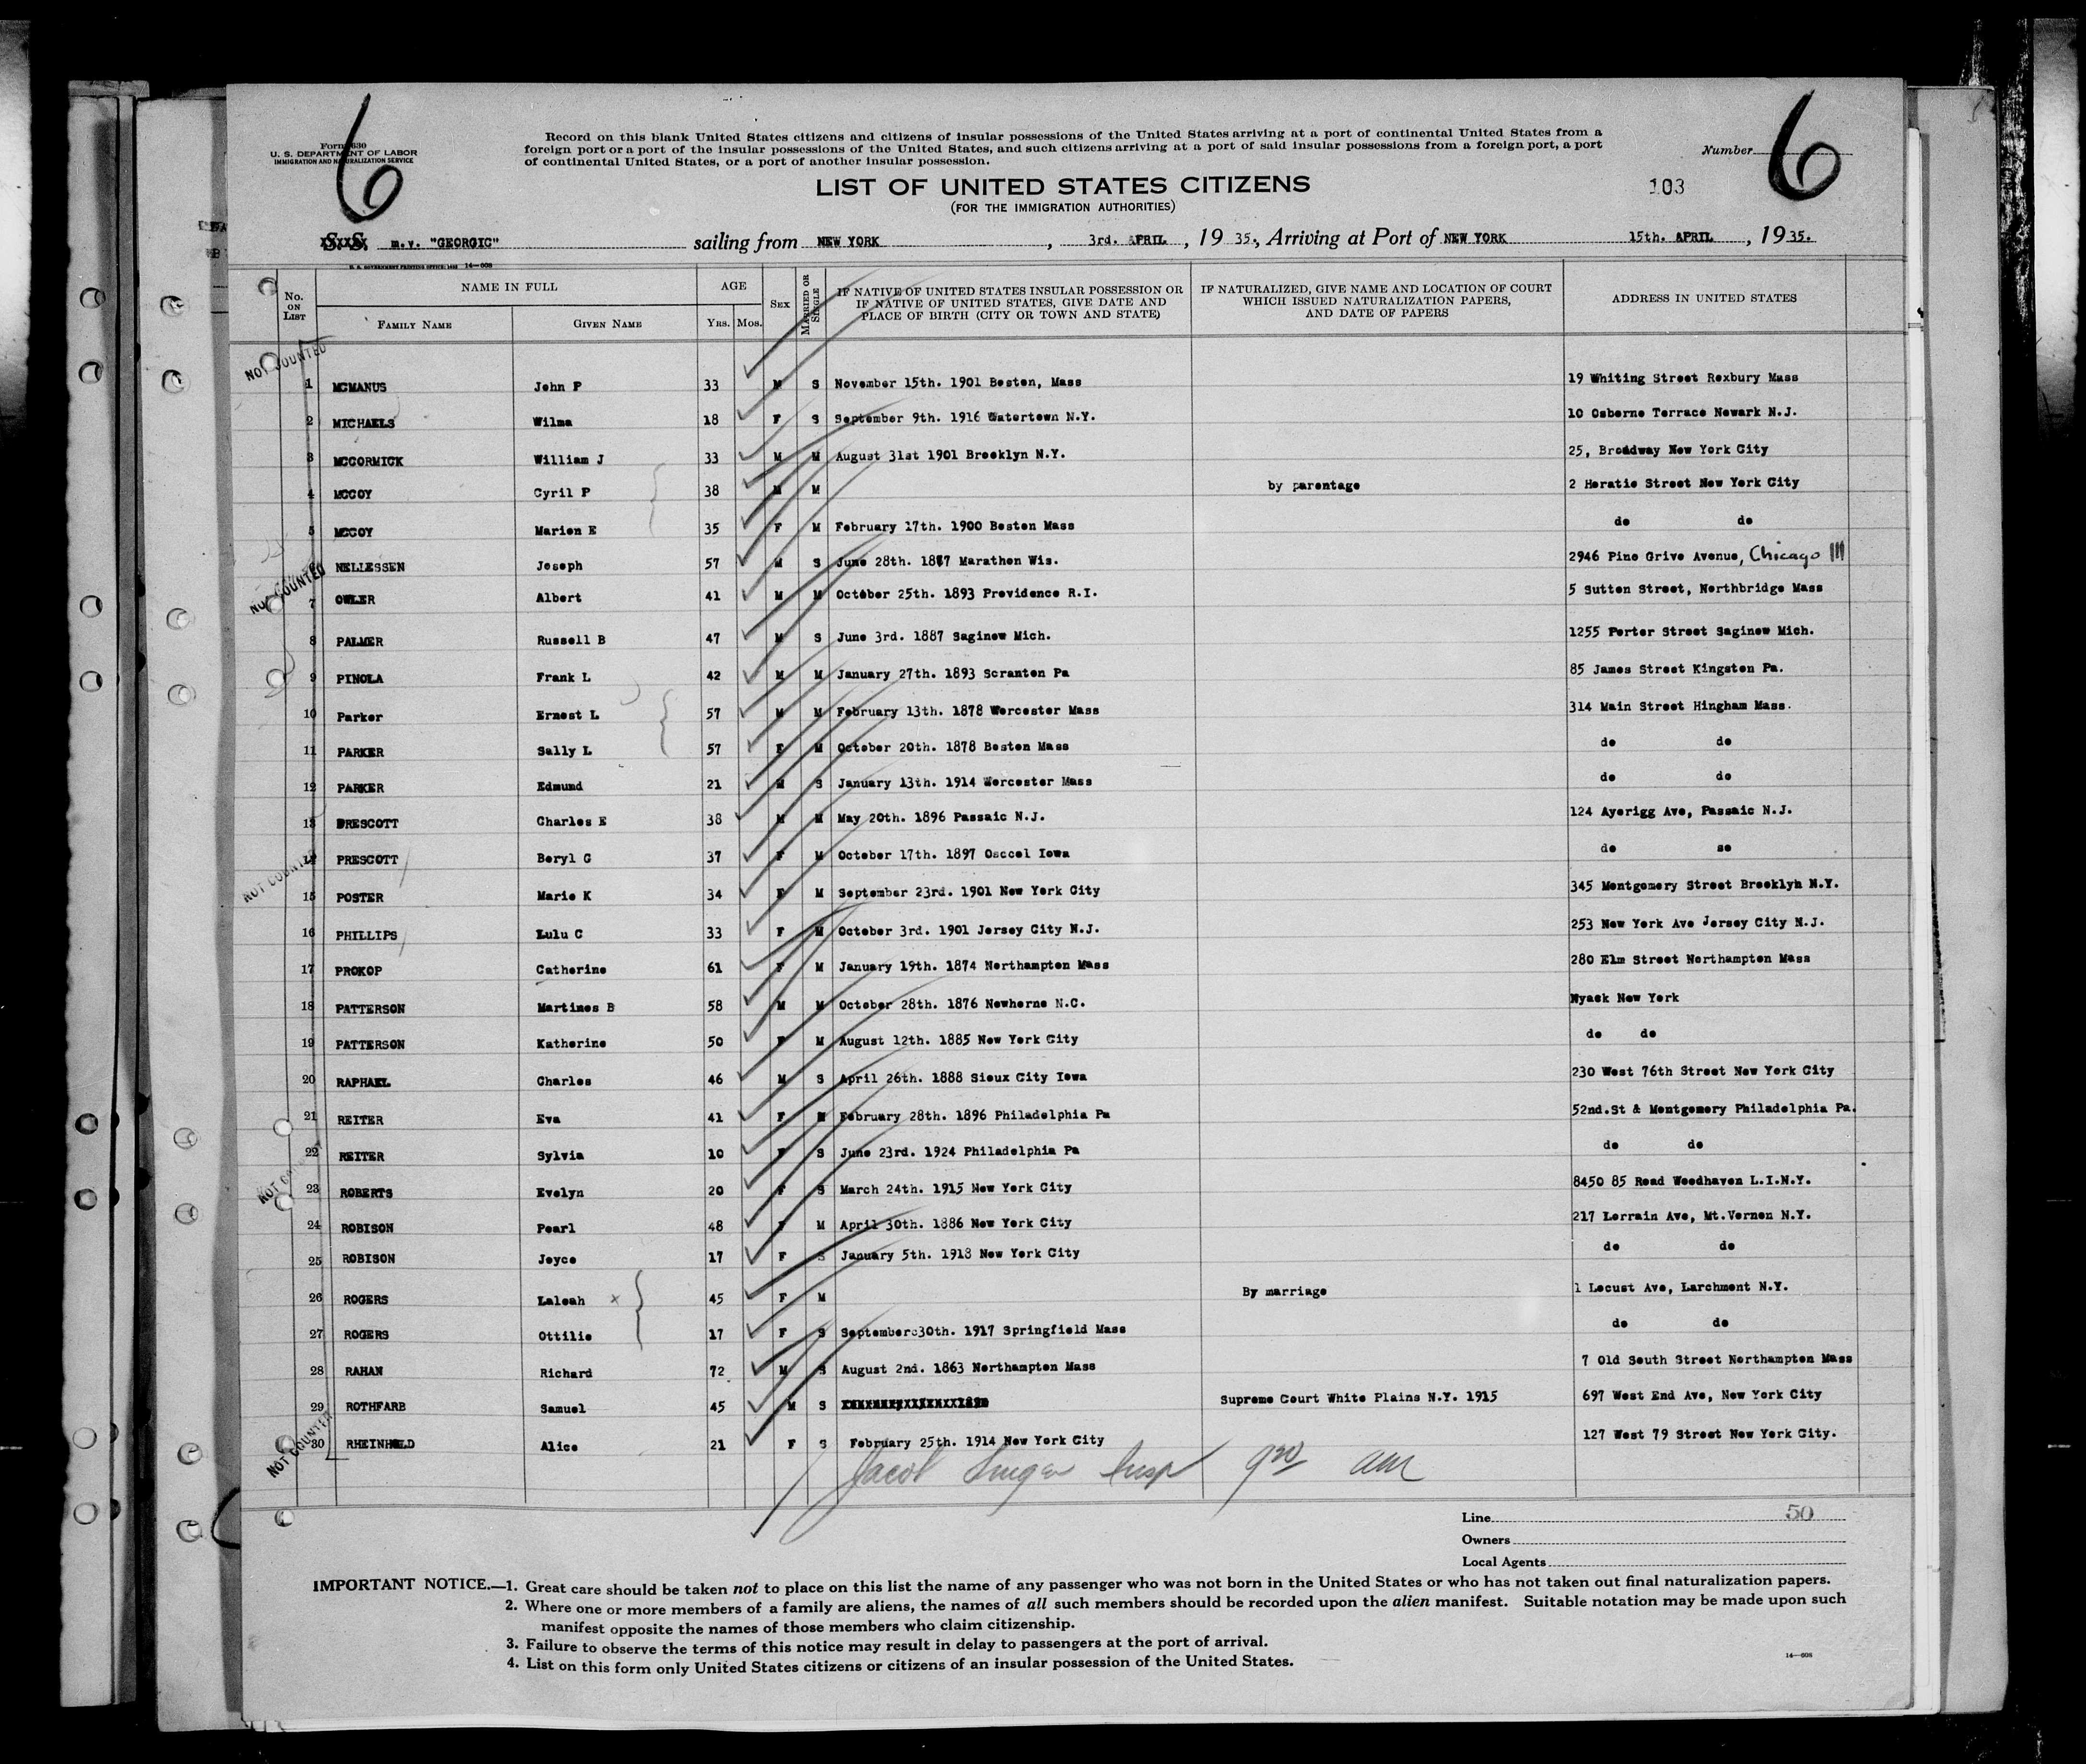 6
6
Form 630
U. S. DEPARTMENT OF LABOR
IMMIGRATION AND NATURALIZATION SERVICE
Record on this blank United States citizens and citizens of insular possessions of the United States arriving at a port of continental United States from a
foreign port or a port of the insular possessions of the United States, and such citizens arriving at a port of said insular possessions from a foreign port, a port
of continental United States, or a port of another insular possession.
Number
LIST OF UNITED STATES CITIZENS
103
(FOR THE IMMIGRATION AUTHORITIES)
S. S. m.v. "GEORGIC" sailing from NEW YORK, 3rd. APRIL, 19 35., Arriving at Port of NEW YORK 15th. APRIL, 19 35.
U. S. GOVERNMENT PRINTING OFFICE: 14—608
No. ON LIST
NAME IN FULL
FAMILY NAME
GIVEN NAME
AGE
YRS. MOS.
SEX
MARRIED OR SINGLE
IF NATIVE OF UNITED STATES INSULAR POSSESSION OR
IF NATIVE OF UNITED STATES, GIVE DATE AND
PLACE OF BIRTH (CITY OR TOWN AND STATE)
IF NATURALIZED, GIVE NAME AND LOCATION OF COURT
WHICH ISSUED NATURALIZATION PAPERS,
AND DATE OF PAPERS
ADDRESS IN UNITED STATES
NOT COUNTED
1 MCMANUS John P 33 M S November 15th. 1901 Boston, Mass 19 Whiting Street Roxbury Mass
2 MICHAELS Wilma 18 F S September 9th. 1916 Watertown N.Y. 10 Osborne Terrace Newark N.J.
3 MCCORMICK William J 33 M M August 31st 1901 Brooklyn N.Y. 25, Broadway New York City
4 MCCOY Cyril P 38 M M by parentage 2 Horatio Street New York City
5 MCCOY Marion E 35 F M February 17th. 1900 Boston Mass do do
6 NELLESSEN Joseph 57 M S June 28th. 1877 Marathon Wis. 2946 Pine Grive Avenue, Chicago Ill
NOT COUNTED
7 OWLER Albert 41 M M October 25th. 1893 Providence R.I. 5 Sutton Street, Northbridge Mass
8 PALMER Russell B 47 M S June 3rd. 1887 Saginow Mich. 1255 Porter Street Saginow Mich.
9 PINOLA Frank L 42 M M January 27th. 1893 Scranton Pa 85 James Street Kingston Pa.
10 Parker Ernest L 57 M M February 13th. 1878 Worcester Mass 314 Main Street Hingham Mass.
11 PARKER Sally L 57 F M October 20th. 1878 Boston Mass do do
12 PARKER Edmund 21 M S January 13th. 1914 Worcester Mass do do
13 PRESCOTT Charles E 38 M M May 20th. 1896 Passaic N.J. 124 Ayerigg Ave, Passaic N.J.
14 PRESCOTT Beryl G 37 F M October 17th. 1897 Osceol Iowa do so
NOT COUNTED
15 POSTER Marie K 34 F M September 23rd. 1901 New York City 345 Montgomery Street Brooklyn N.Y.
16 PHILLIPS Lulu C 33 F M October 3rd. 1901 Jersey City N.J. 253 New York Ave Jersey City N.J.
17 PROKOP Catherine 61 F M January 19th. 1874 Northampton Mass 280 Elm Street Northampton Mass
18 PATTERSON Martines B 58 M M October 28th. 1876 Newherne N.C. Nyack New York
19 PATTERSON Katherine 50 F M August 12th. 1885 New York City do do
20 RAPHAEL Charles 46 M S April 26th. 1888 Sioux City Iowa 230 West 76th Street New York City
21 REITER Eva 41 F M February 28th. 1896 Philadelphia Pa 52nd.St & Montgomery Philadelphia Pa.
22 REITER Sylvia 10 F S June 23rd. 1924 Philadelphia Pa do do
NOT COUNTED
23 ROBERTS Evelyn 20 F S March 24th. 1915 New York City 8450 85 Road Woodhaven L.I.N.Y.
24 ROBISON Pearl 48 F M April 30th. 1886 New York City 217 Lorrain Ave, Mt.Vernon N.Y.
25 ROBISON Joyce 17 F S January 5th. 1918 New York City do do
26 ROGERS Laleah x 45 F M By marriage 1 Locust Ave, Larchment N.Y.
27 ROGERS Ottilie 17 F S September 30th. 1917 Springfield Mass do do
28 RAHAN Richard 72 M S August 2nd. 1863 Northampton Mass 7 Old South Street Northampton Mass
29 ROTHFARB Samuel 45 M S Supreme Court White Plains N.Y. 1915 697 West End Ave, New York City
NOT COUNTED
30 RHEINHOLD Alice 21 F S February 25th. 1914 New York City 127 West 79 Street New York City.
Jacob Singer Insp 9 20 am
Line 50
Owners
Local Agents
IMPORTANT NOTICE.—1. Great care should be taken not to place on this list the name of any passenger who was not born in the United States or who has not taken out final naturalization papers.
2. Where one or more members of a family are aliens, the names of all such members should be recorded upon the alien manifest. Suitable notation may be made upon such
manifest opposite the names of those members who claim citizenship.
3. Failure to observe the terms of this notice may result in delay to passengers at the port of arrival.
4. List on this form only United States citizens or citizens of an insular possession of the United States.
14—608